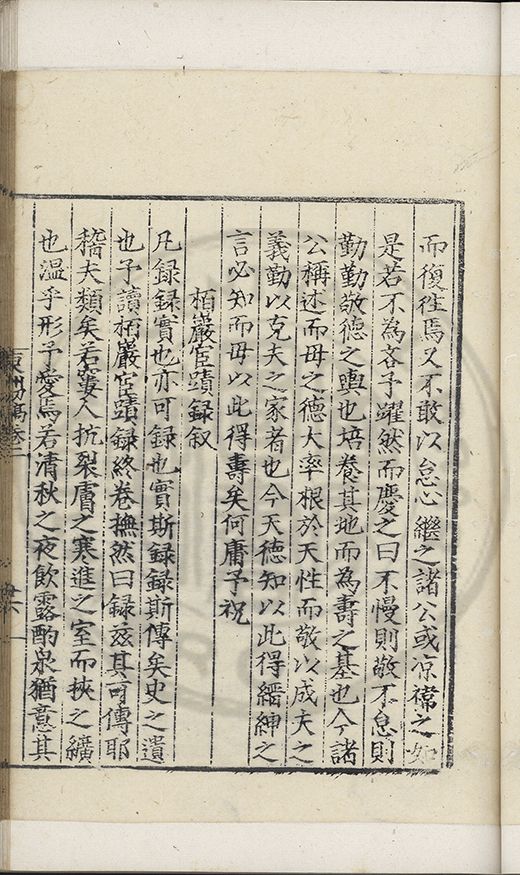 而復往焉又不敢以怠心繼之諸公或凉襦之如
是若不為吝予躍然而慶之曰不慢則敬不息則
勤勤敬德之輿也培養其地而為壽之基也今諸
公稱述而母之德大率根於天性而敬以成夫之
義勤以克夫之家者也今天德知以此得縉紳之
言必知而母以此得壽矣何庸予祝
栢巖宦蹟録叙
凡録録實也亦可録也實斯録録斯傳矣史之遺
也予讀栢巖宦蹟録終卷撫然曰録茲其可傳耶
稽夫類矣若窶人抗裂膚之寒進之室而挾之纊
也溫乎形予愛焉若清秋之夜飲露酌泉猶意其